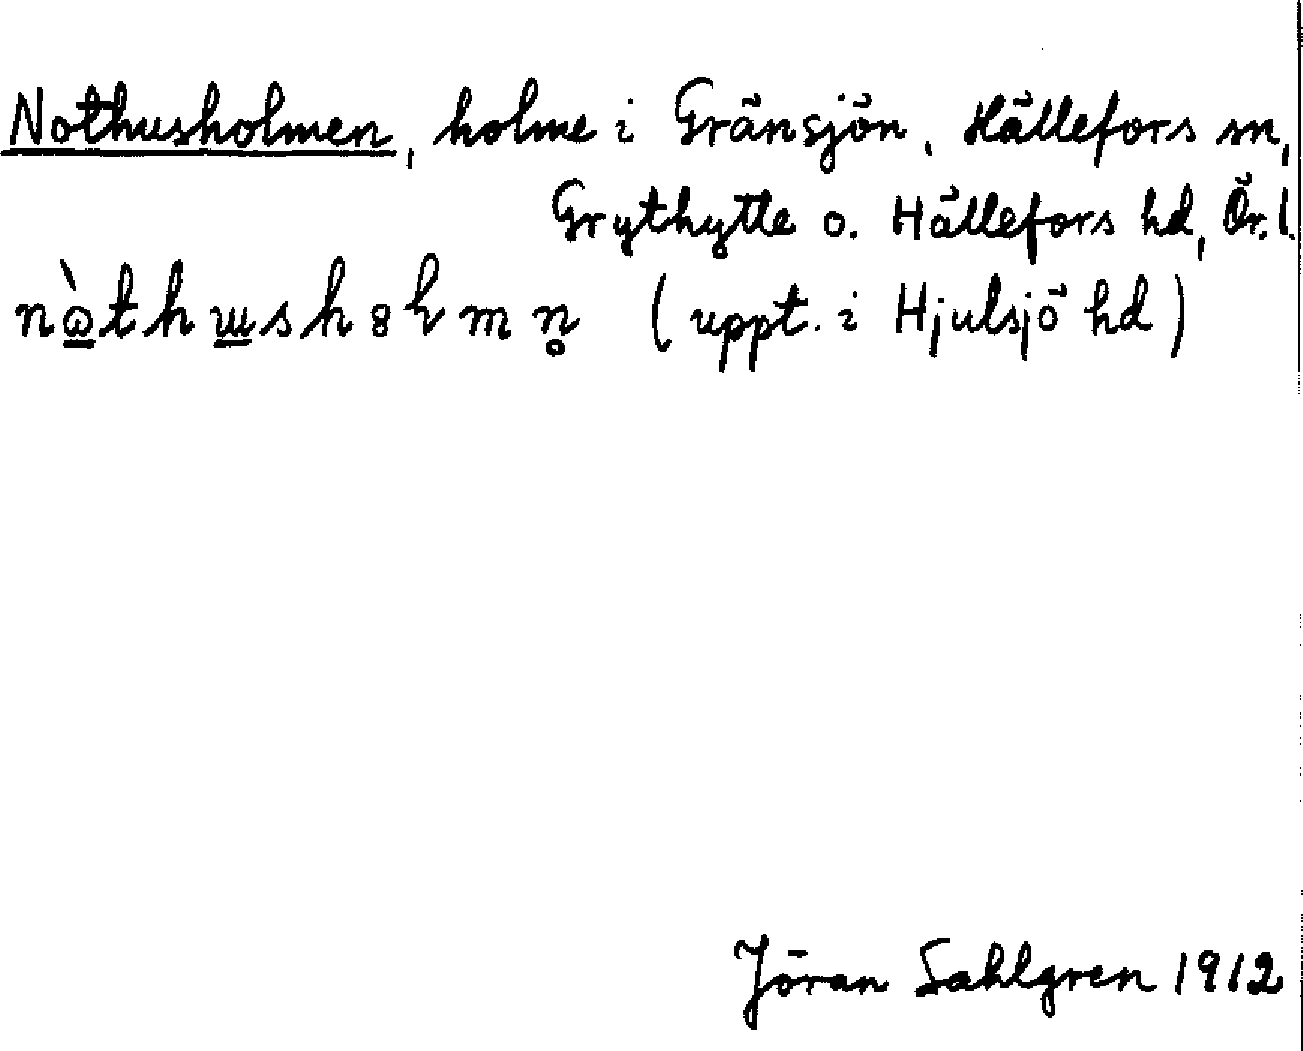 Nothusholmen, holme i Gränsjön, Hällefors sn,
Grythytte o. Hällefors hd, Ör. l.
(uppt. i Hjulsjö hd)
Jöran Sahlgren 1912